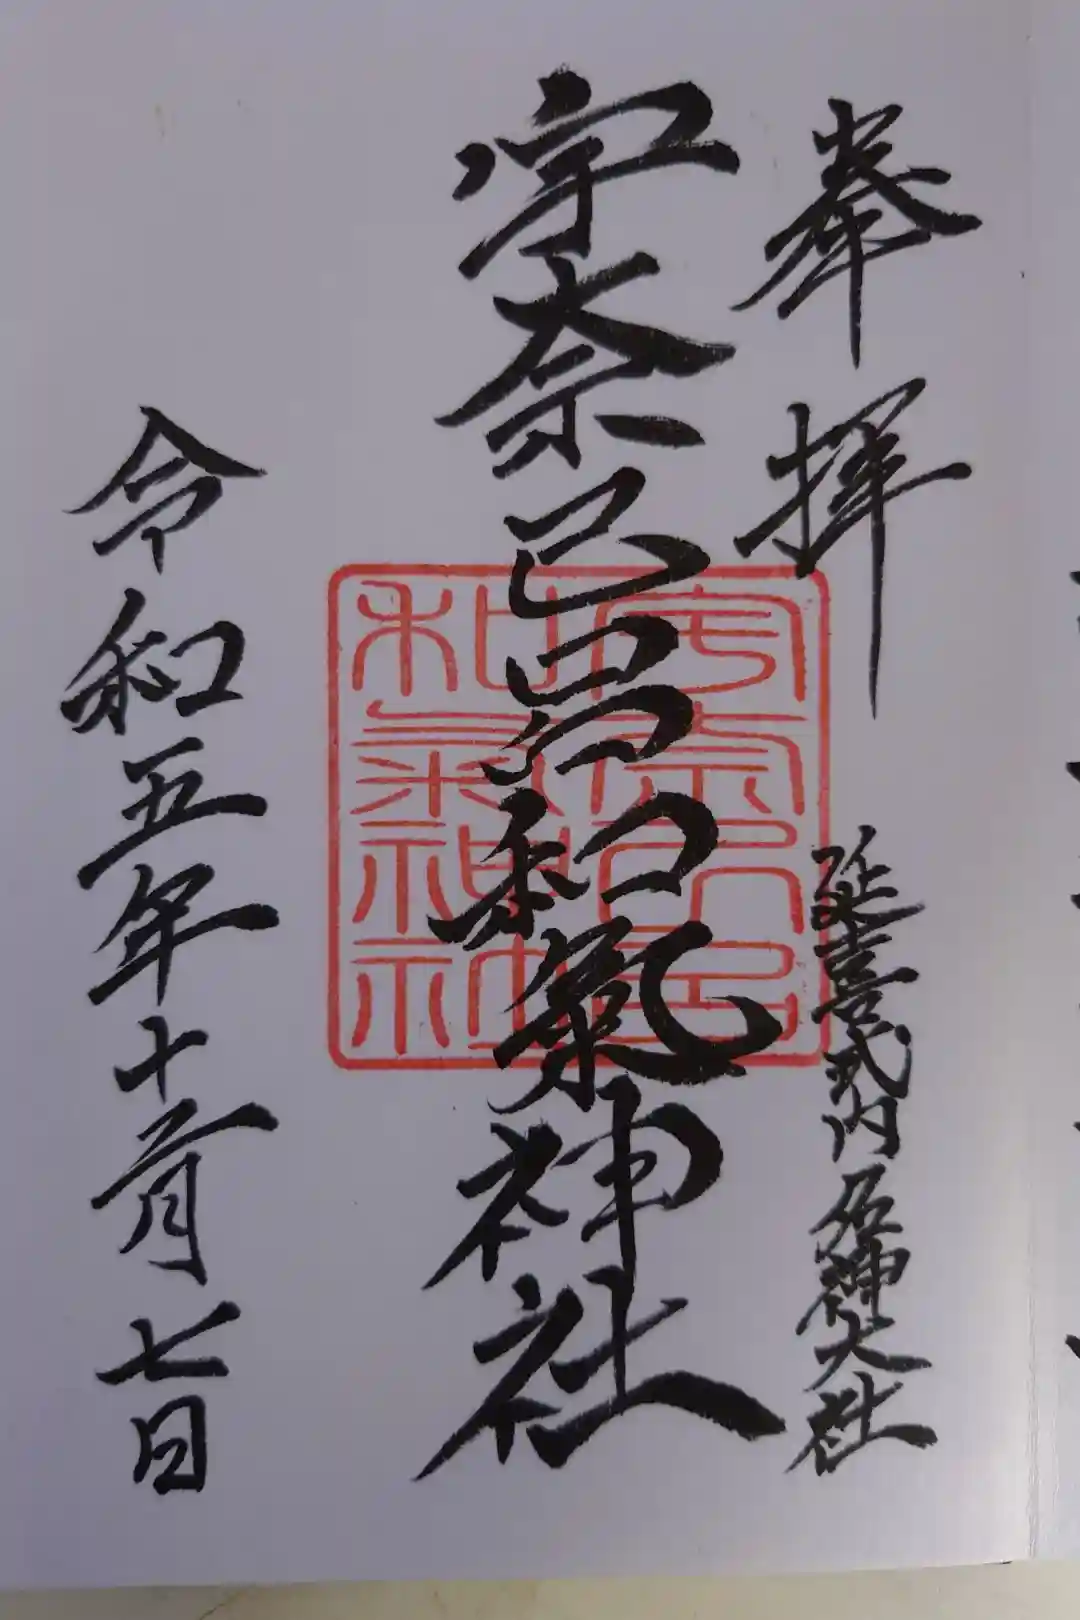 奉拝
延喜式内名神大社
宇奈己呂和氣神社
令和五年十二月七日
宇奈己呂
和氣神社